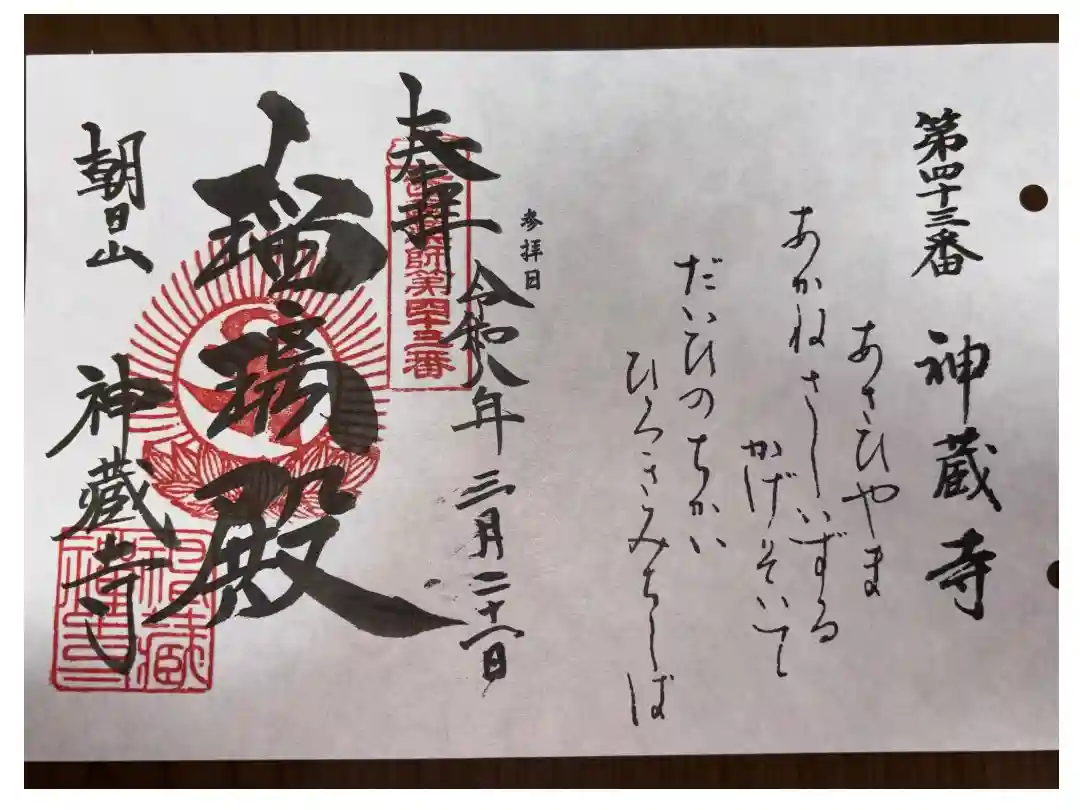 第四十三番 神蔵寺
あさひやま
あかねさしいずる
かげりそいて
だいひのちかい
ひろきみちしば
参拝日
奉拝 令和八年三月二十一日
薬師第四十三番
瑠璃殿
朝日山 神蔵寺